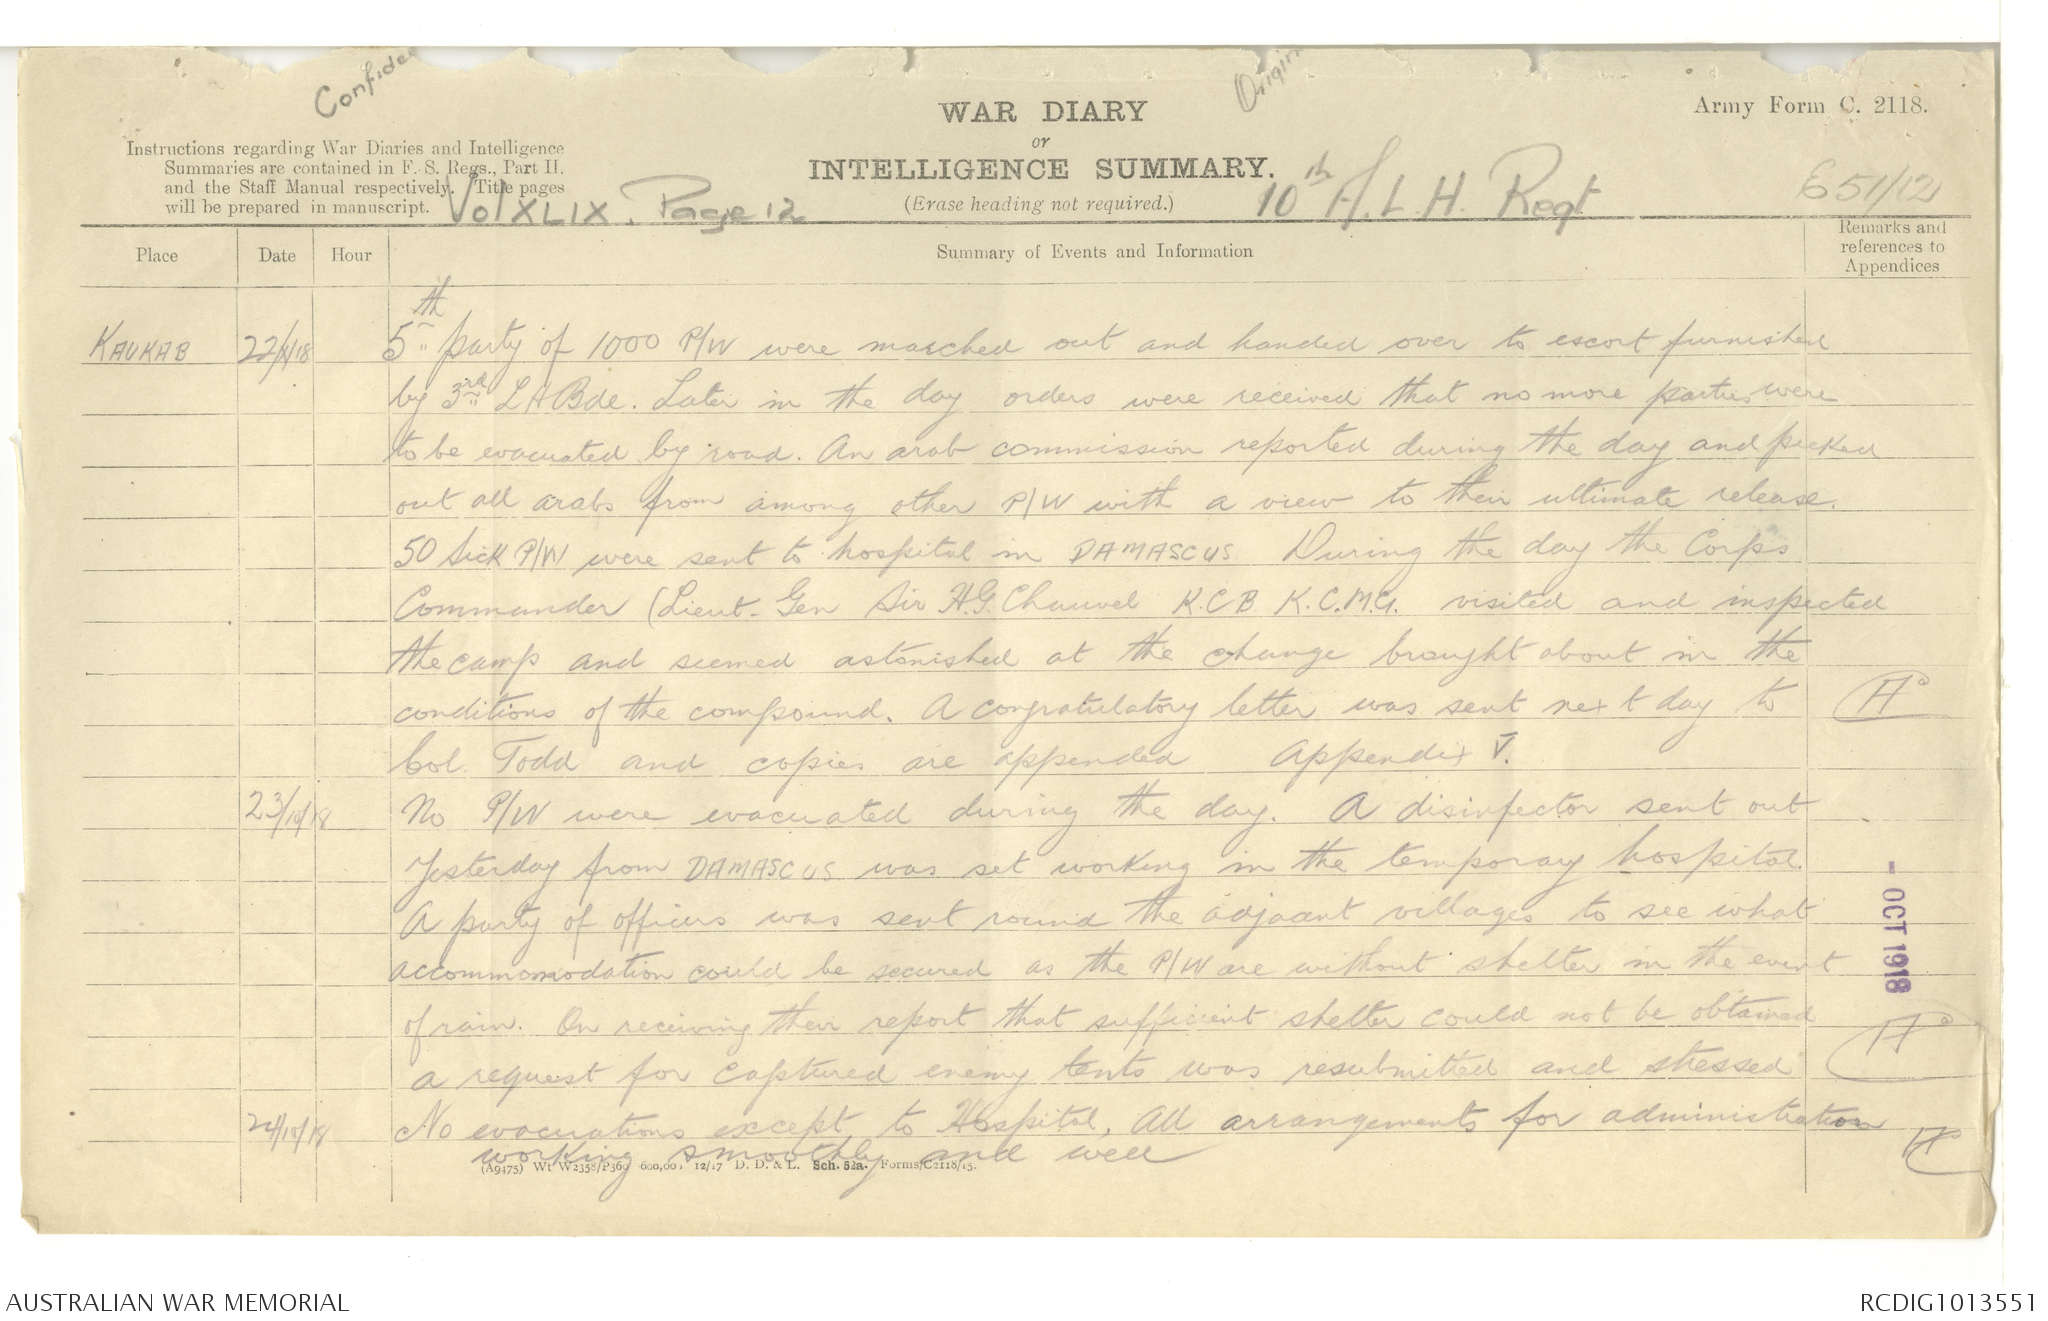 Confide
Origin
Army Form C. 2118.
WAR DIARY
or
INTELLIGENCE SUMMARY.
(Erase heading not required.)
Instructions regarding War Diaries and Intelligence
Summaries are contained in F. S. Regs., Part II.
and the Staff Manual respectively. Title pages
will be prepared in manuscript.
Vol XLIX. Page 12
10th A. L. H. Regt
E51/12
Place
Date
Hour
Summary of Events and Information
Remarks and
references to
Appendices
KAUKAB 22/X/18 5th party of 1000 P/W were marched out and handed over to escort furnished
by 3rd L H Bde. Later in the day orders were received that no more parties were
to be evacuated by road. An arab commission reported during the day and picked
out all arabs from among other P/W with a view to their ultimate release.
50 Sick P/W were sent to hospital in DAMASCUS During the day the Corps
Commander (Lieut-Gen Sir H.G. Chauvel K.C B K.C.M.G. visited and inspected
the camp and seemed astonished at the change brought about in the
conditions of the compound. A congratulatory letter was sent next day to
Col. Todd and copies are appended Appendix V.
23/10/18 No P/W were evacuated during the day. A disinfector sent out
Yesterday from DAMASCUS was set working in the temporay hospital.
A party of officers was sent round the adjacent villages to see what
accommomodation could be secured as the P/W are without shelter in the event
of rain. On receiving their report that sufficient shelter could not be obtained
a request for captured enemy tents was resubmitted and stressed
24/10/18 No evacuations except to Hospital, All arrangements for administration
working smoothly and well
- OCT 1918
(A9475) Wt W2358/P360 600,000 12/17 D. D. & L. Sch. 52a. Forms/C2118/15.
AUSTRALIAN WAR MEMORIAL
RCDIG1013551